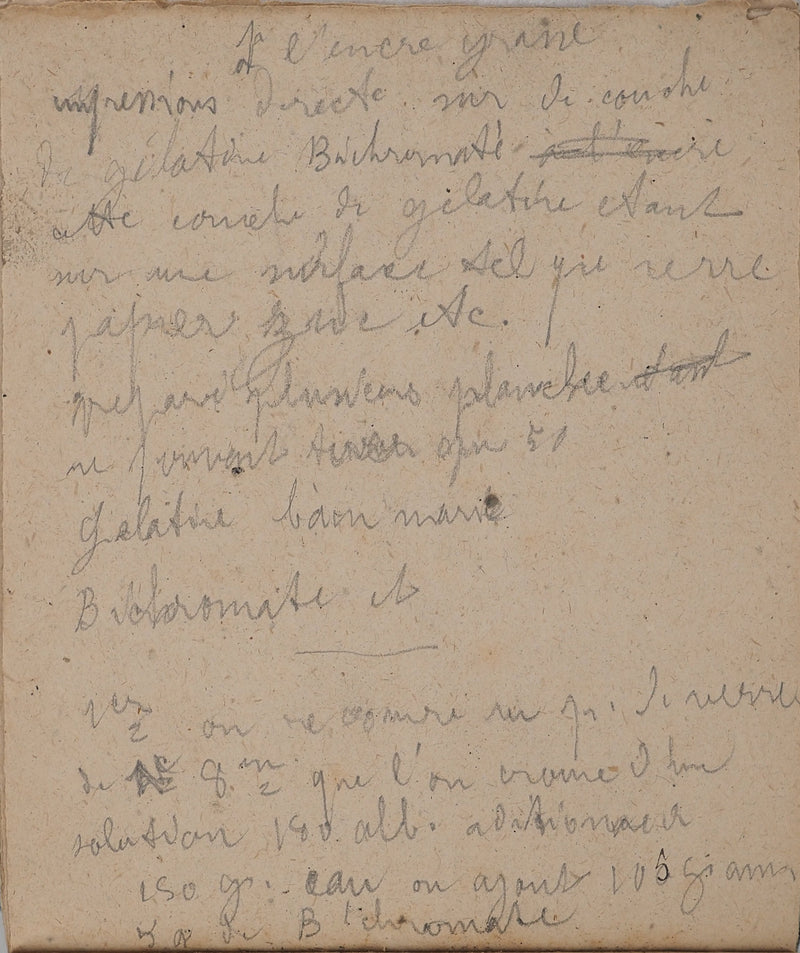 à l'encre grasse
impressions directe sur de couche
de gélatine Bichromaté
cette couche de gelatine etant
sur une surface tel que verre
papier zinc etc.
preparé plusieurs planches
ne pouvant tirer que 50
Gelatine bain marie
Bichromate et
on recouvre un p. de verre
de 8 m que l'on d'une
solution 150 alb. aditionner
150 gr. eau on ajout 105 gramm
de Bichromate